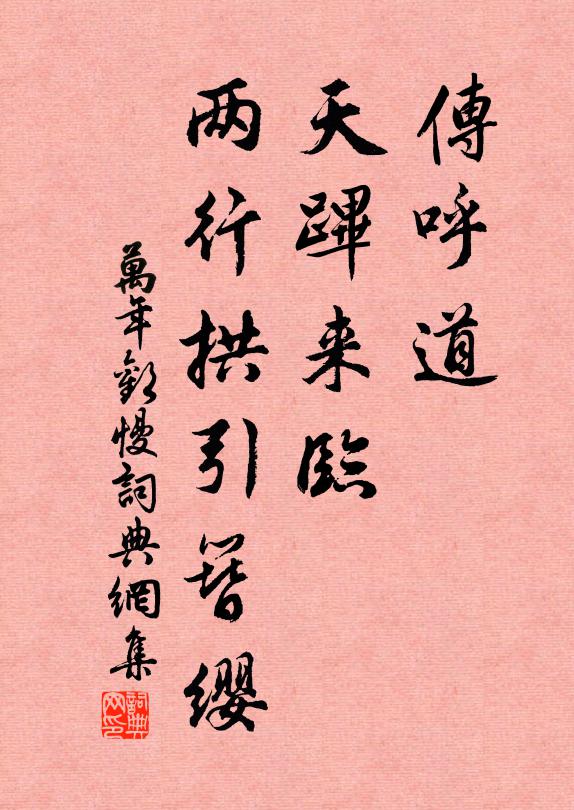 傳呼道
天蹕来臨
两行拱引簪缨
萬年歡慢詞典網集
詞典网印